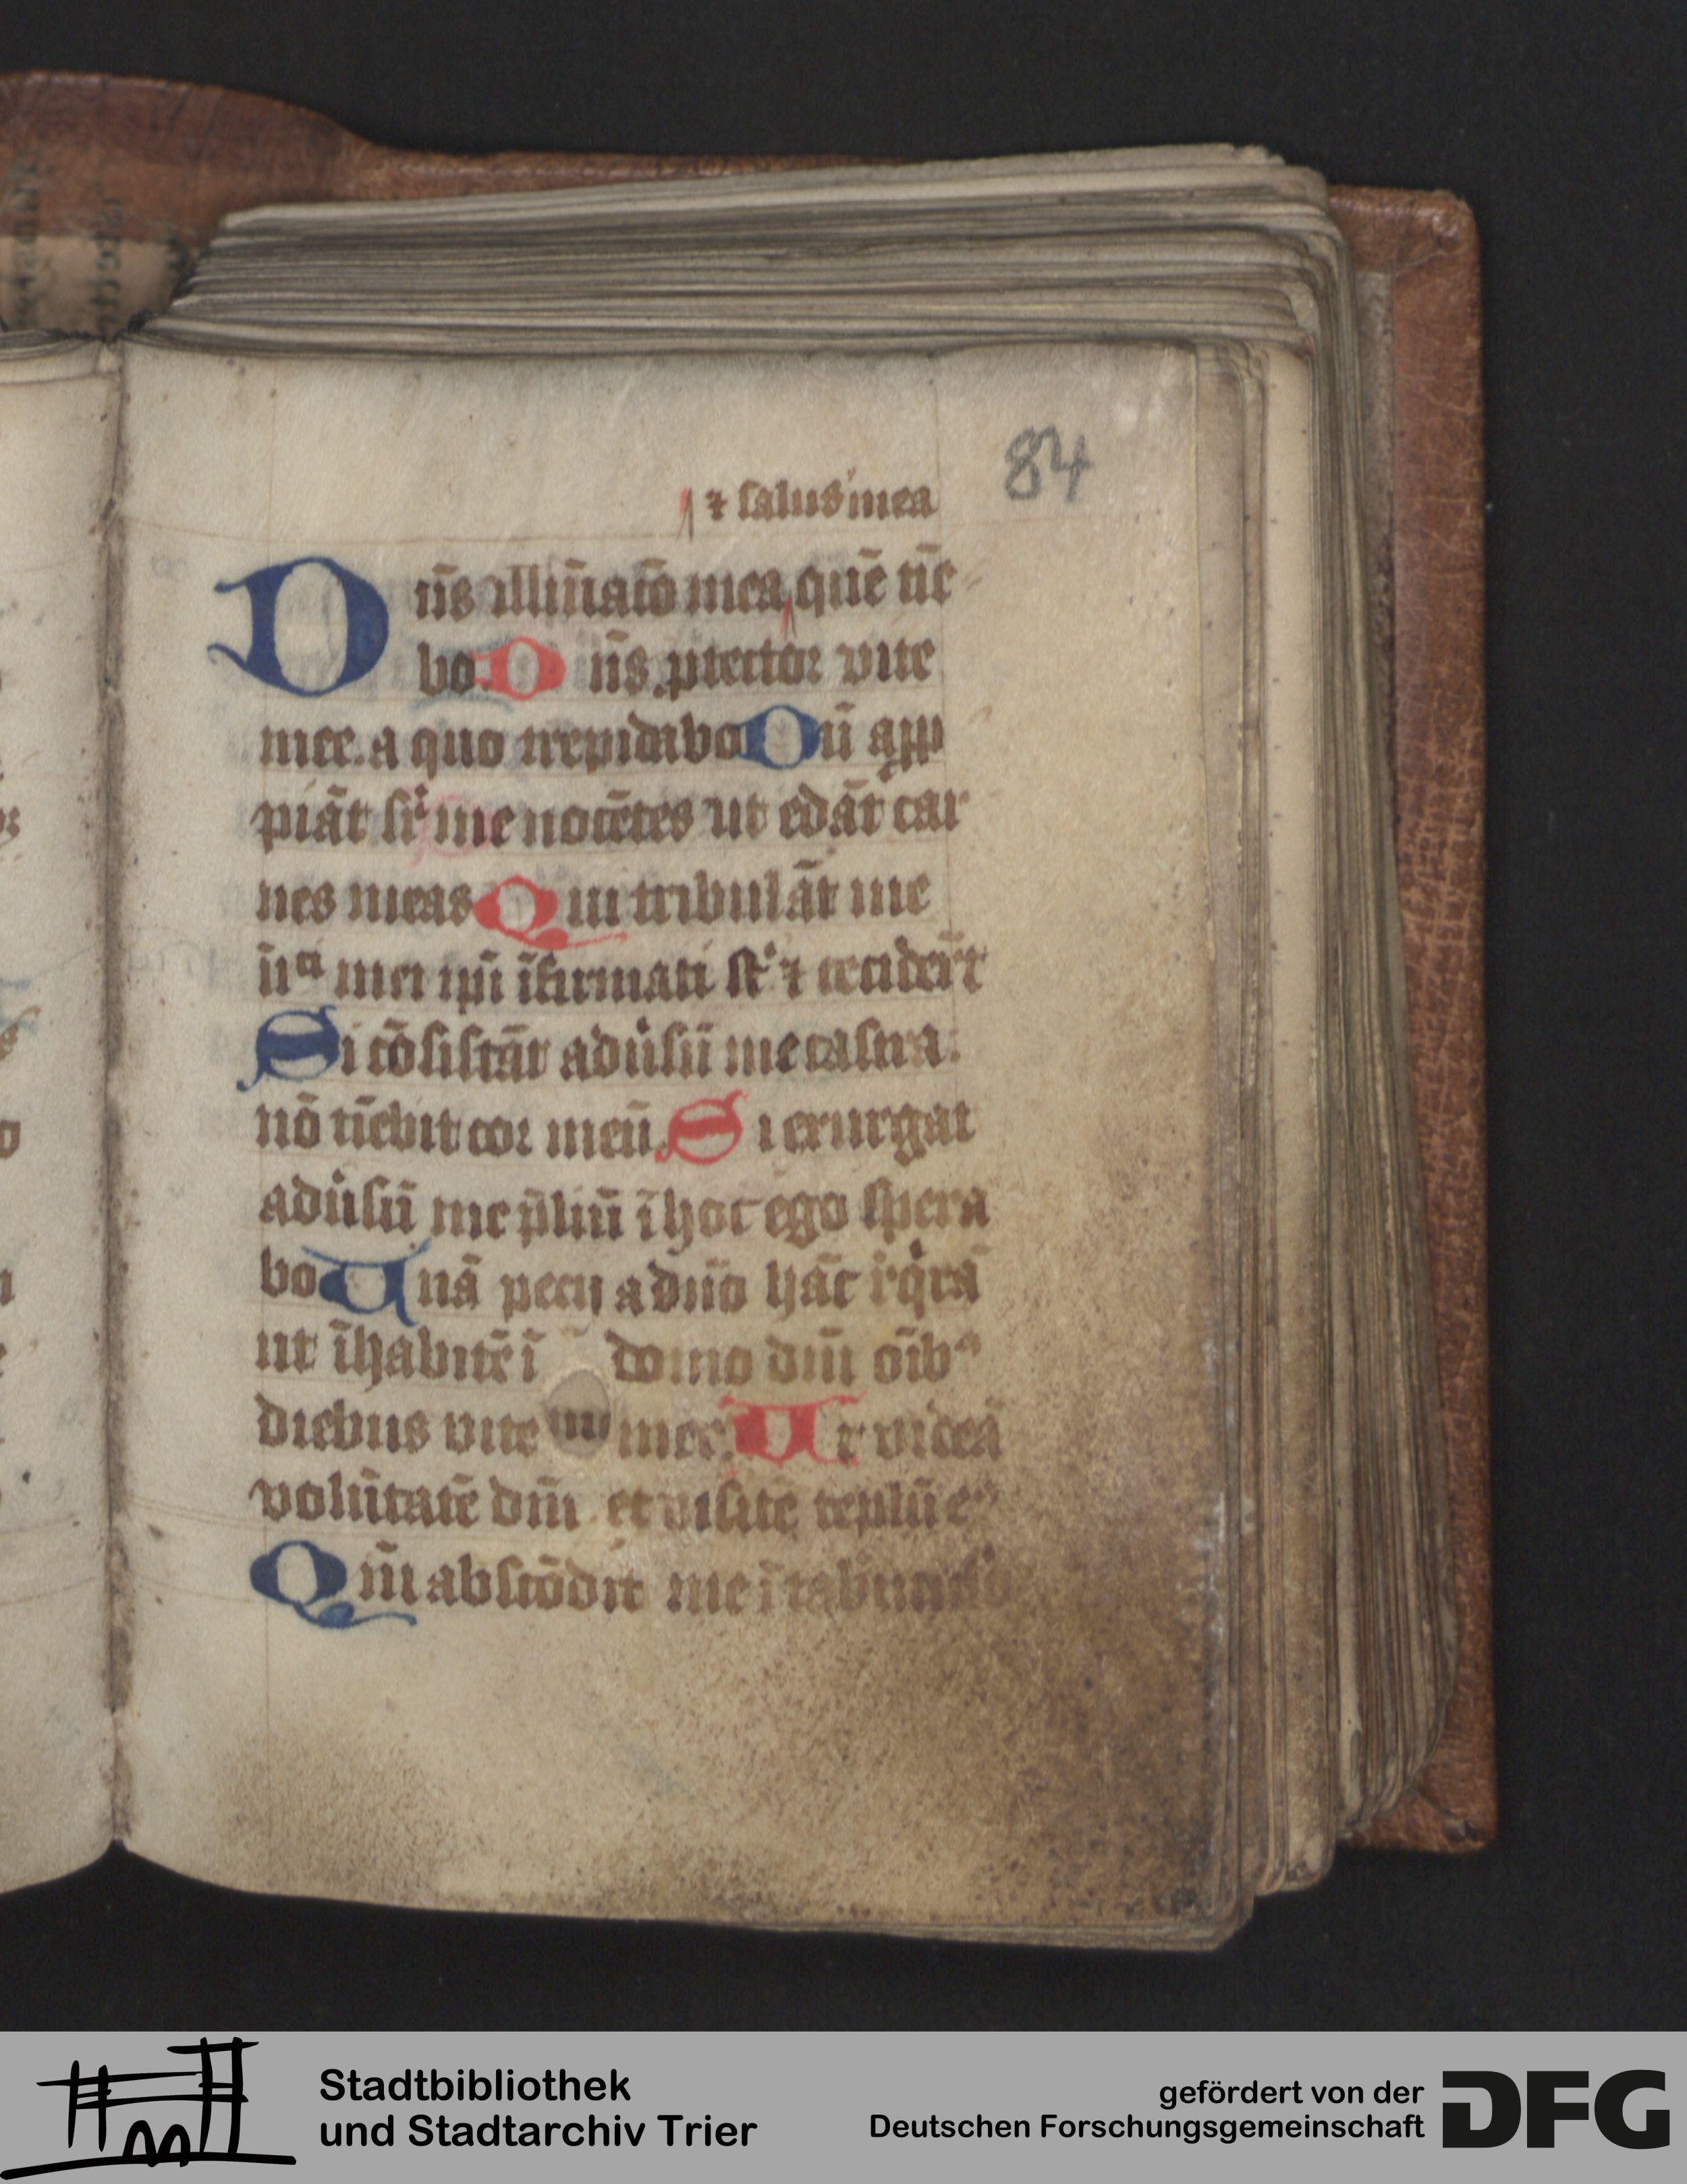 84
⁊ salus mea
Dn̄s illūiatō mea, quē tīe
bo. Dn̄s ꝓtector vite
mee. a quo trepidabo Dū app
piāt sr̄ me nocētes ut edāt car
nes meas Qui tribulāt me
īiᶜⁱ mei ipī īfirmati st̄ ⁊ cecider̄t
Si cōsistāt adūsū me castra:
nō tīebit cor meū. Si exurgat
adūsū me p̄liū ī hoc ego spera
bo Unā pecij a dn̄o hāc reqͥrā
ut īhabitē ī domo dn̄i oīb⁹
diebus vite mee. Ut videā
volūtatē dn̄i et visitē tēplū eꝰ
Qm̄ abscōdit me ī tab̄naclo
Stadtbibliothek
und Stadtarchiv Trier
gefördert von der
Deutschen Forschungsgemeinschaft
DFG